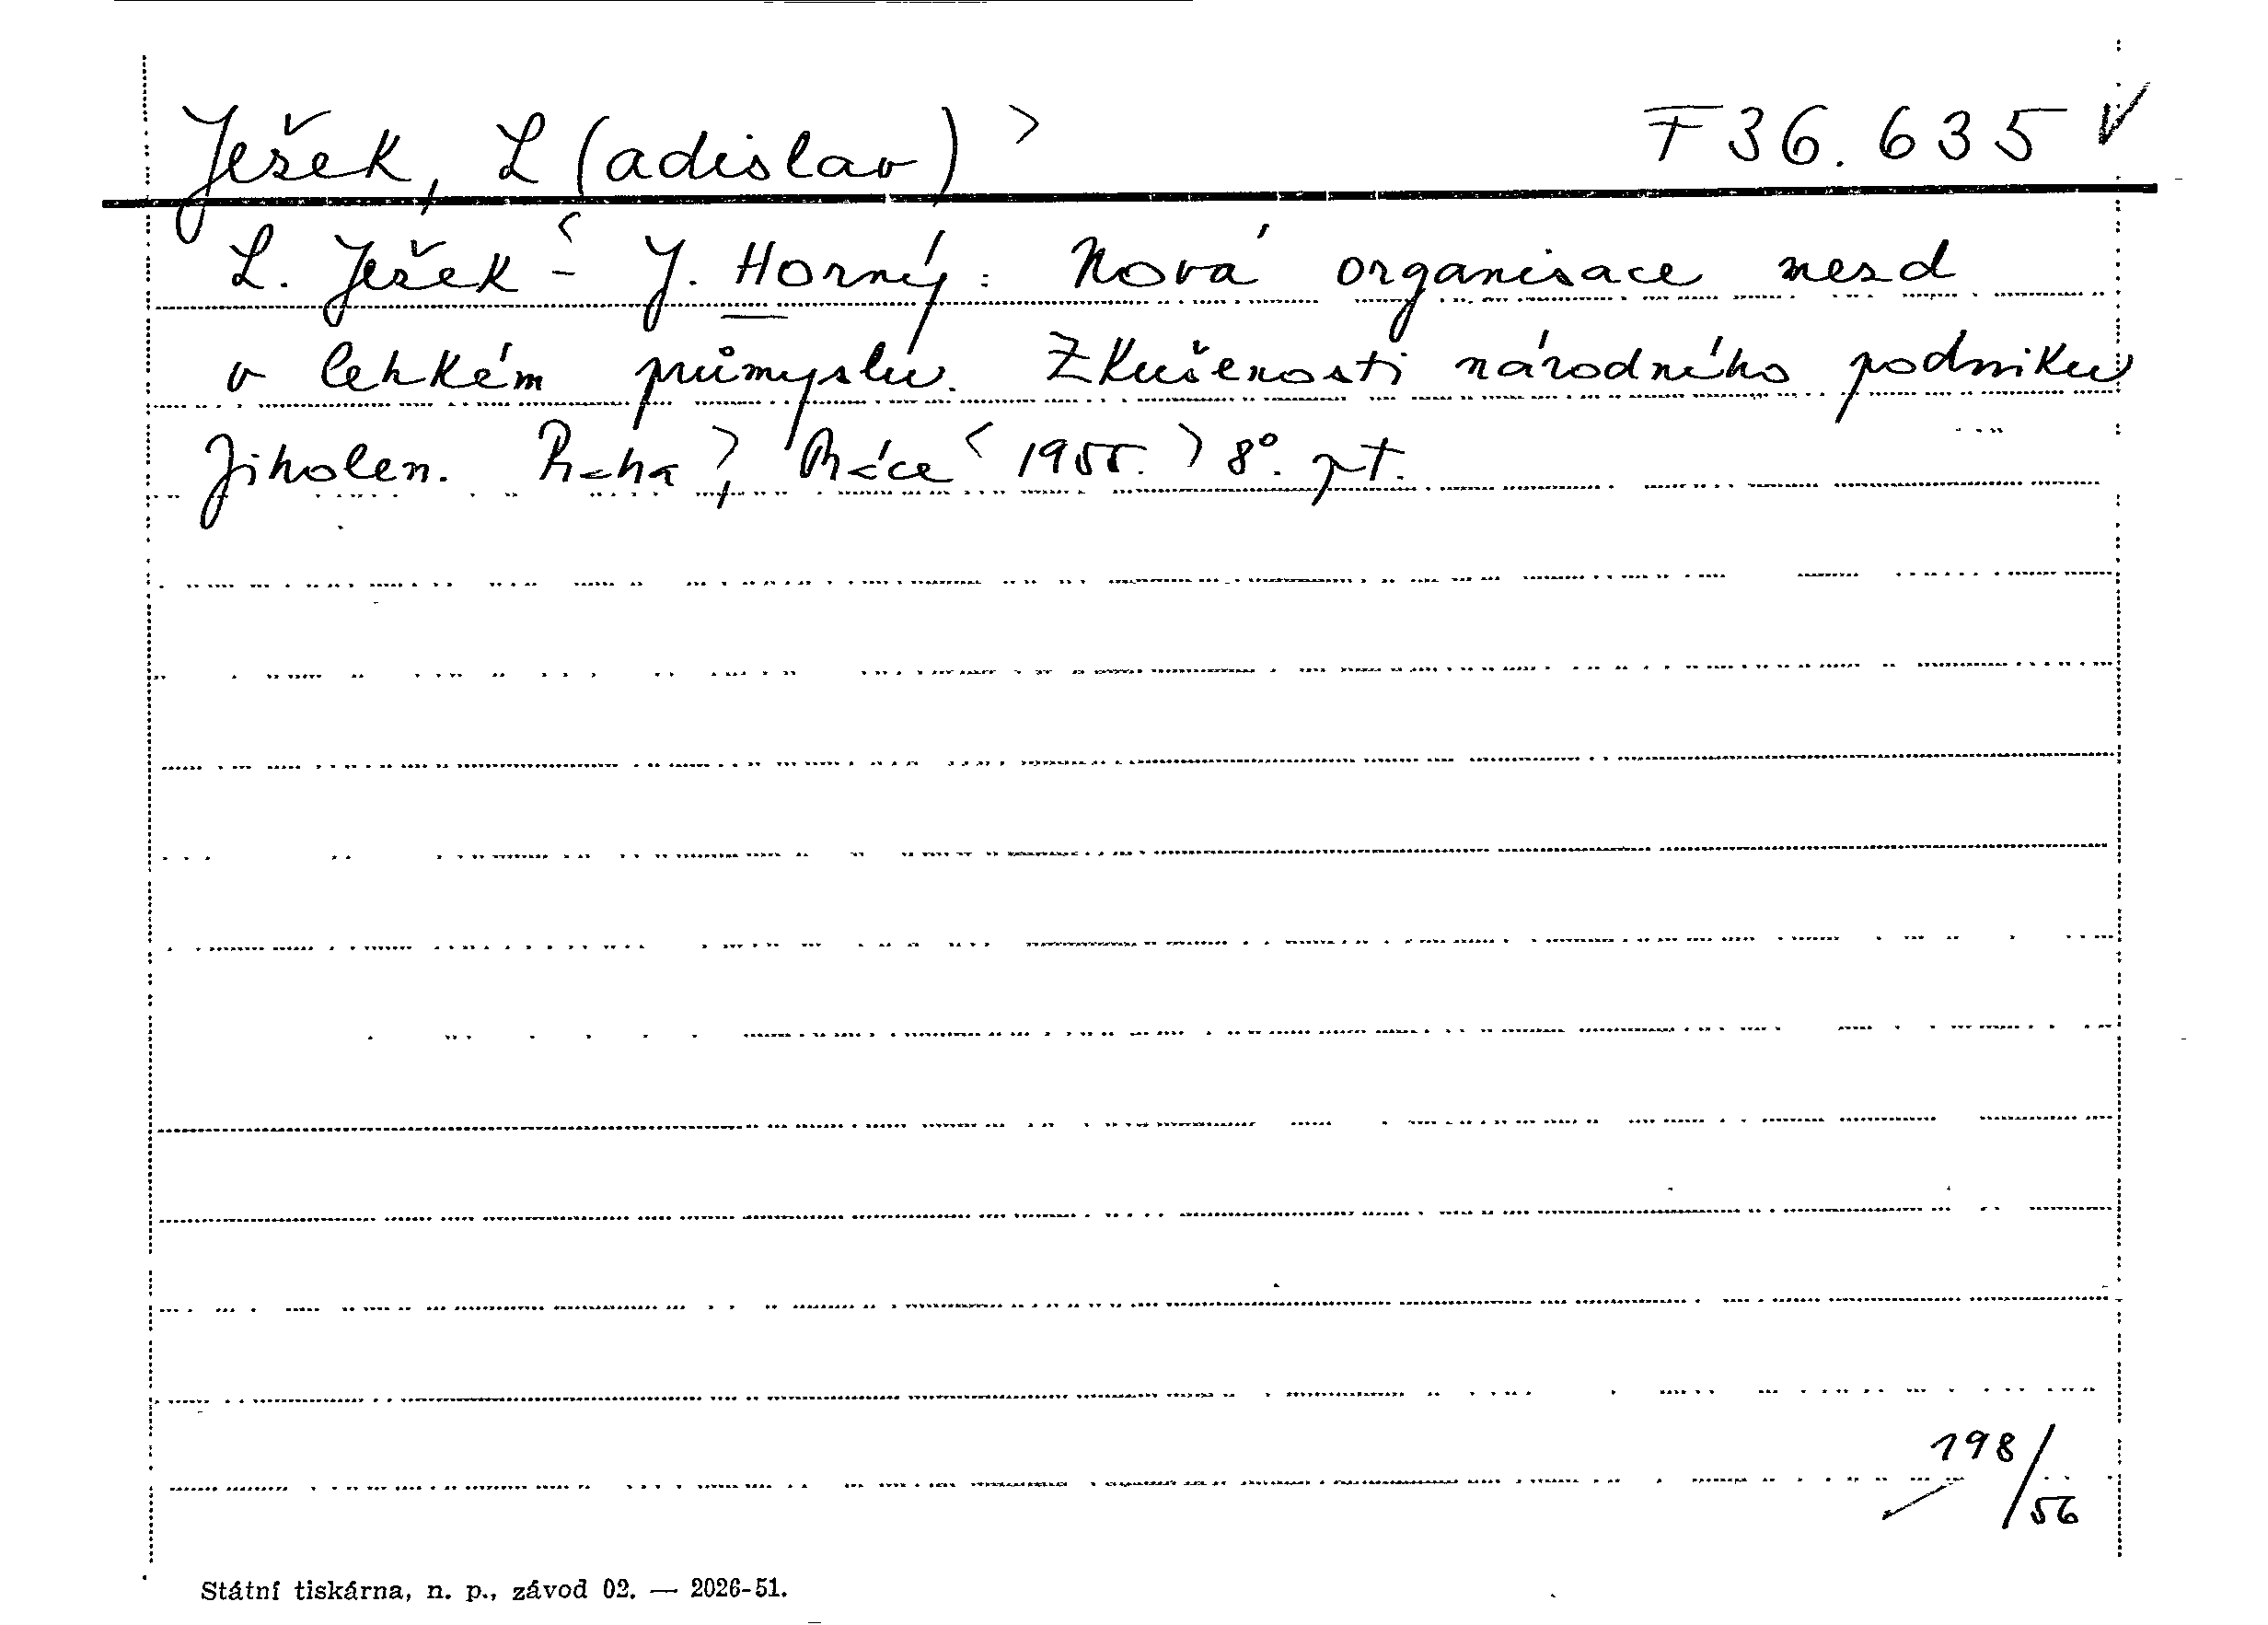 Ježek, L(adislav) > F 36.635 V
L. Ježek < - J. Horný: Nová organisace mezd
v lehkém průmyslu. Zkušenosti národního podniku
Jiholen. Praha >, Práce < 1955. > 8°. pt.
198/56
Státní tiskárna, n. p., závod 02. — 2026-51.